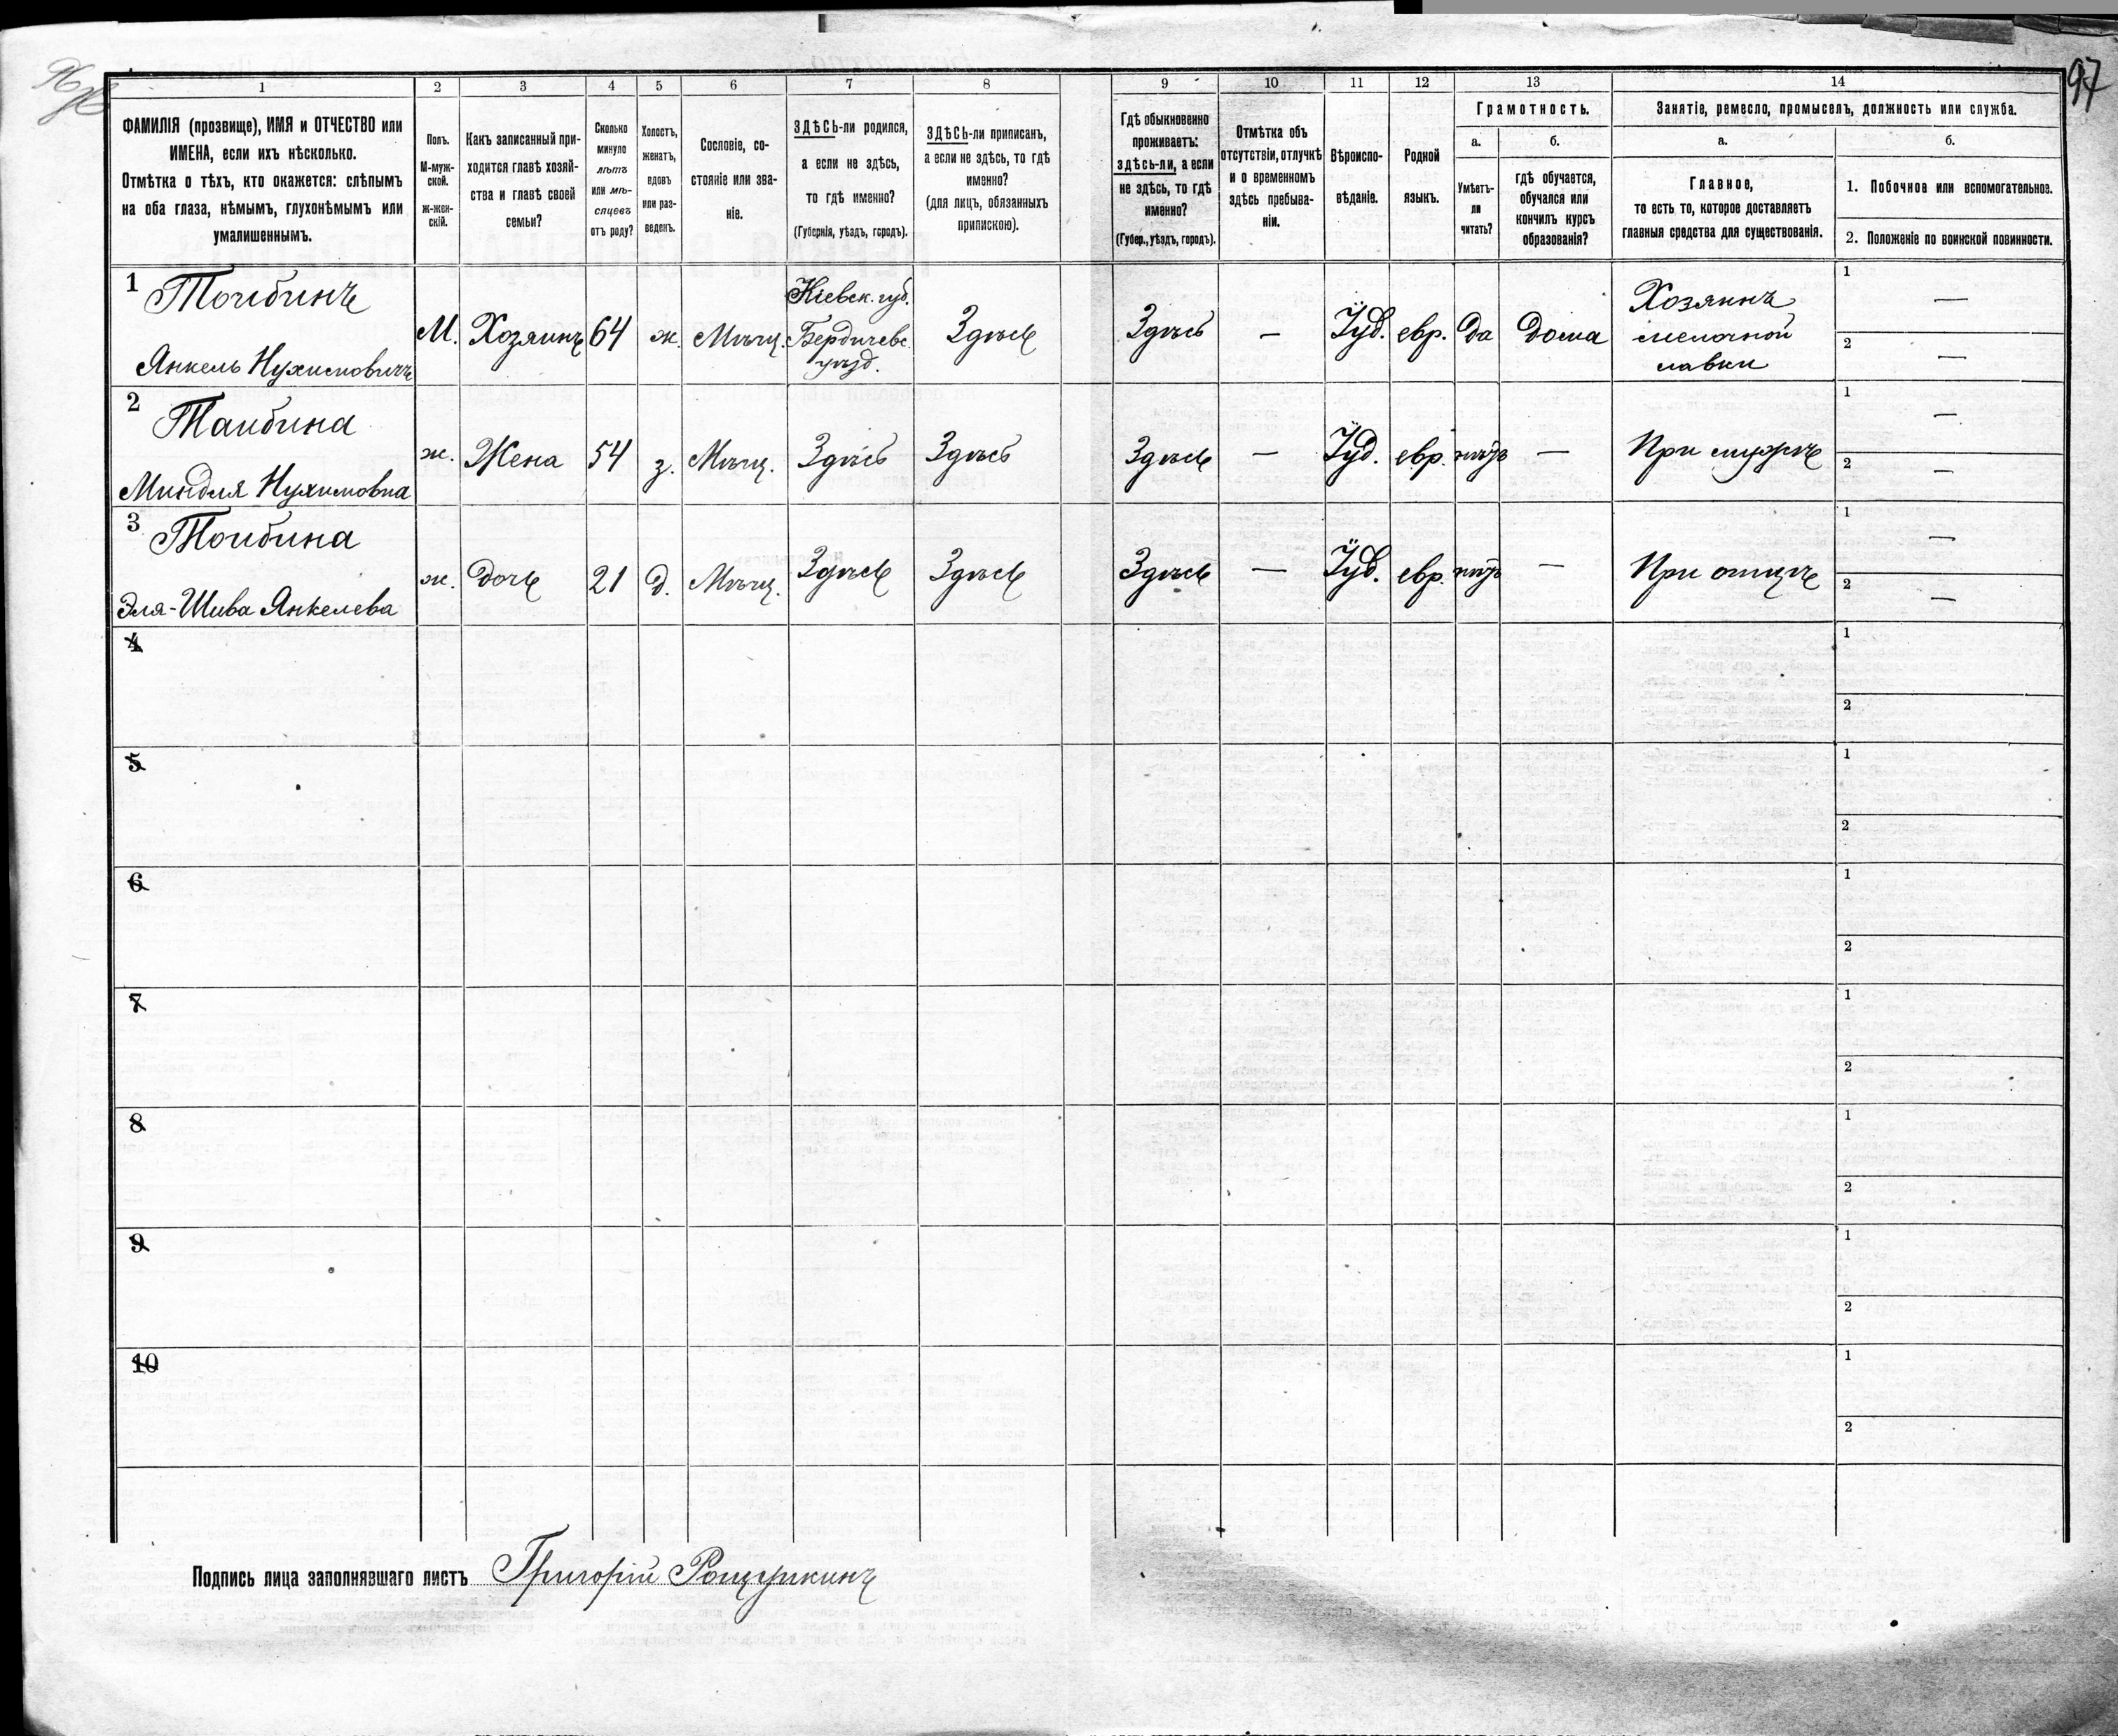 97
1
2
3
4
5
6
7
8
9
10
11
12
13
14
ФАМИЛІЯ (прозвище), ИМЯ и ОТЧЕСТВО или
ИМЕНА, если ихъ нѣсколько.
Отмѣтка о тѣхъ, кто окажется: слѣпымъ
на оба глаза, нѣмымъ, глухонѣмымъ или
умалишеннымъ.
Полъ.
М-муж-
ской.
ж-жен-
скій.
Какъ записанный при-
ходится главѣ хозяй-
ства и главѣ своей
семьи?
Сколько
минуло
лѣтъ
или мѣ-
сяцевъ
отъ роду?
Холостъ,
женатъ,
вдовъ
или раз-
веденъ.
Сословіе, со-
стояніе или зва-
ніе.
ЗДѢСЬ-ли родился,
а если не здѣсь,
то гдѣ именно?
(Губернія, уѣздъ, городъ).
ЗДѢСЬ-ли приписан,
а если не здѣсь, то гдѣ
именно?
(для лицъ, обязанныхъ
припискою).
Гдѣ обыкновенно
проживаетъ:
здѣсь-ли, а если
не здѣсь, то гдѣ
именно?
(Губер., уѣздъ, городъ).
Отмѣтка объ
отсутствіи, отлучкѣ
и о временномъ
здѣсь пребыва-
ніи.
Вѣроиспо-
вѣданіе.
Родной
языкъ.
Грамотность.
а.
Умѣетъ-
ли
читать?
б.
гдѣ обучается,
обучался или
кончилъ курсъ
образованія?
Занятіе, ремесло, промыселъ, должность или служба.
а.
Главное,
то есть то, которое доставляетъ
главныя средства для существованія.
б.
1. Побочное или вспомогательное.
2. Положеніе по воинской повинности.
1
Тоибинъ
Янкель Нухимовичъ
М.
Хозяинъ
64
ж.
Мѣщ.
Кіевск. губ.
Бердичевс.
уѣзд.
Здѣсь
Здѣсь
—
Іуд.
евр.
Да
Дома
Хозяинъ
мелочной
лавки
1
—
2
—
2
Таибина
Миндля Нухимовна
ж.
Жена
54
з.
Мѣщ.
Здѣсь
Здѣсь
Здѣсь
—
Іуд.
евр.
нѣтъ
—
При мужѣ
1
—
2
—
3
Тоибина
Эля-Шива Янкелева
ж.
Дочь
21
д.
Мѣщ.
Здѣсь
Здѣсь
Здѣсь
—
Іуд.
евр.
нѣтъ
—
При отцѣ
1
—
2
—
4
1
2
5
1
2
6
1
2
7
1
2
8
1
2
9
1
2
10
1
2
Подпись лица заполнявшаго листъ Григорій Рощупкинъ